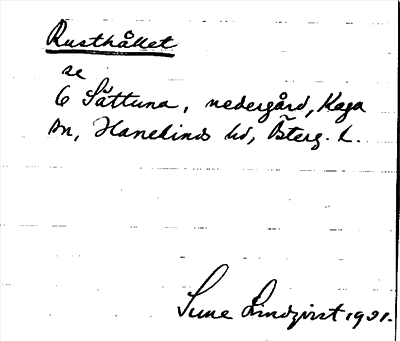 Rusthållet
se
6 Sättuna, nedergård, Kaga
sn, Hanekinds hd, Österg. L.
Sune Lindqvist 1921.